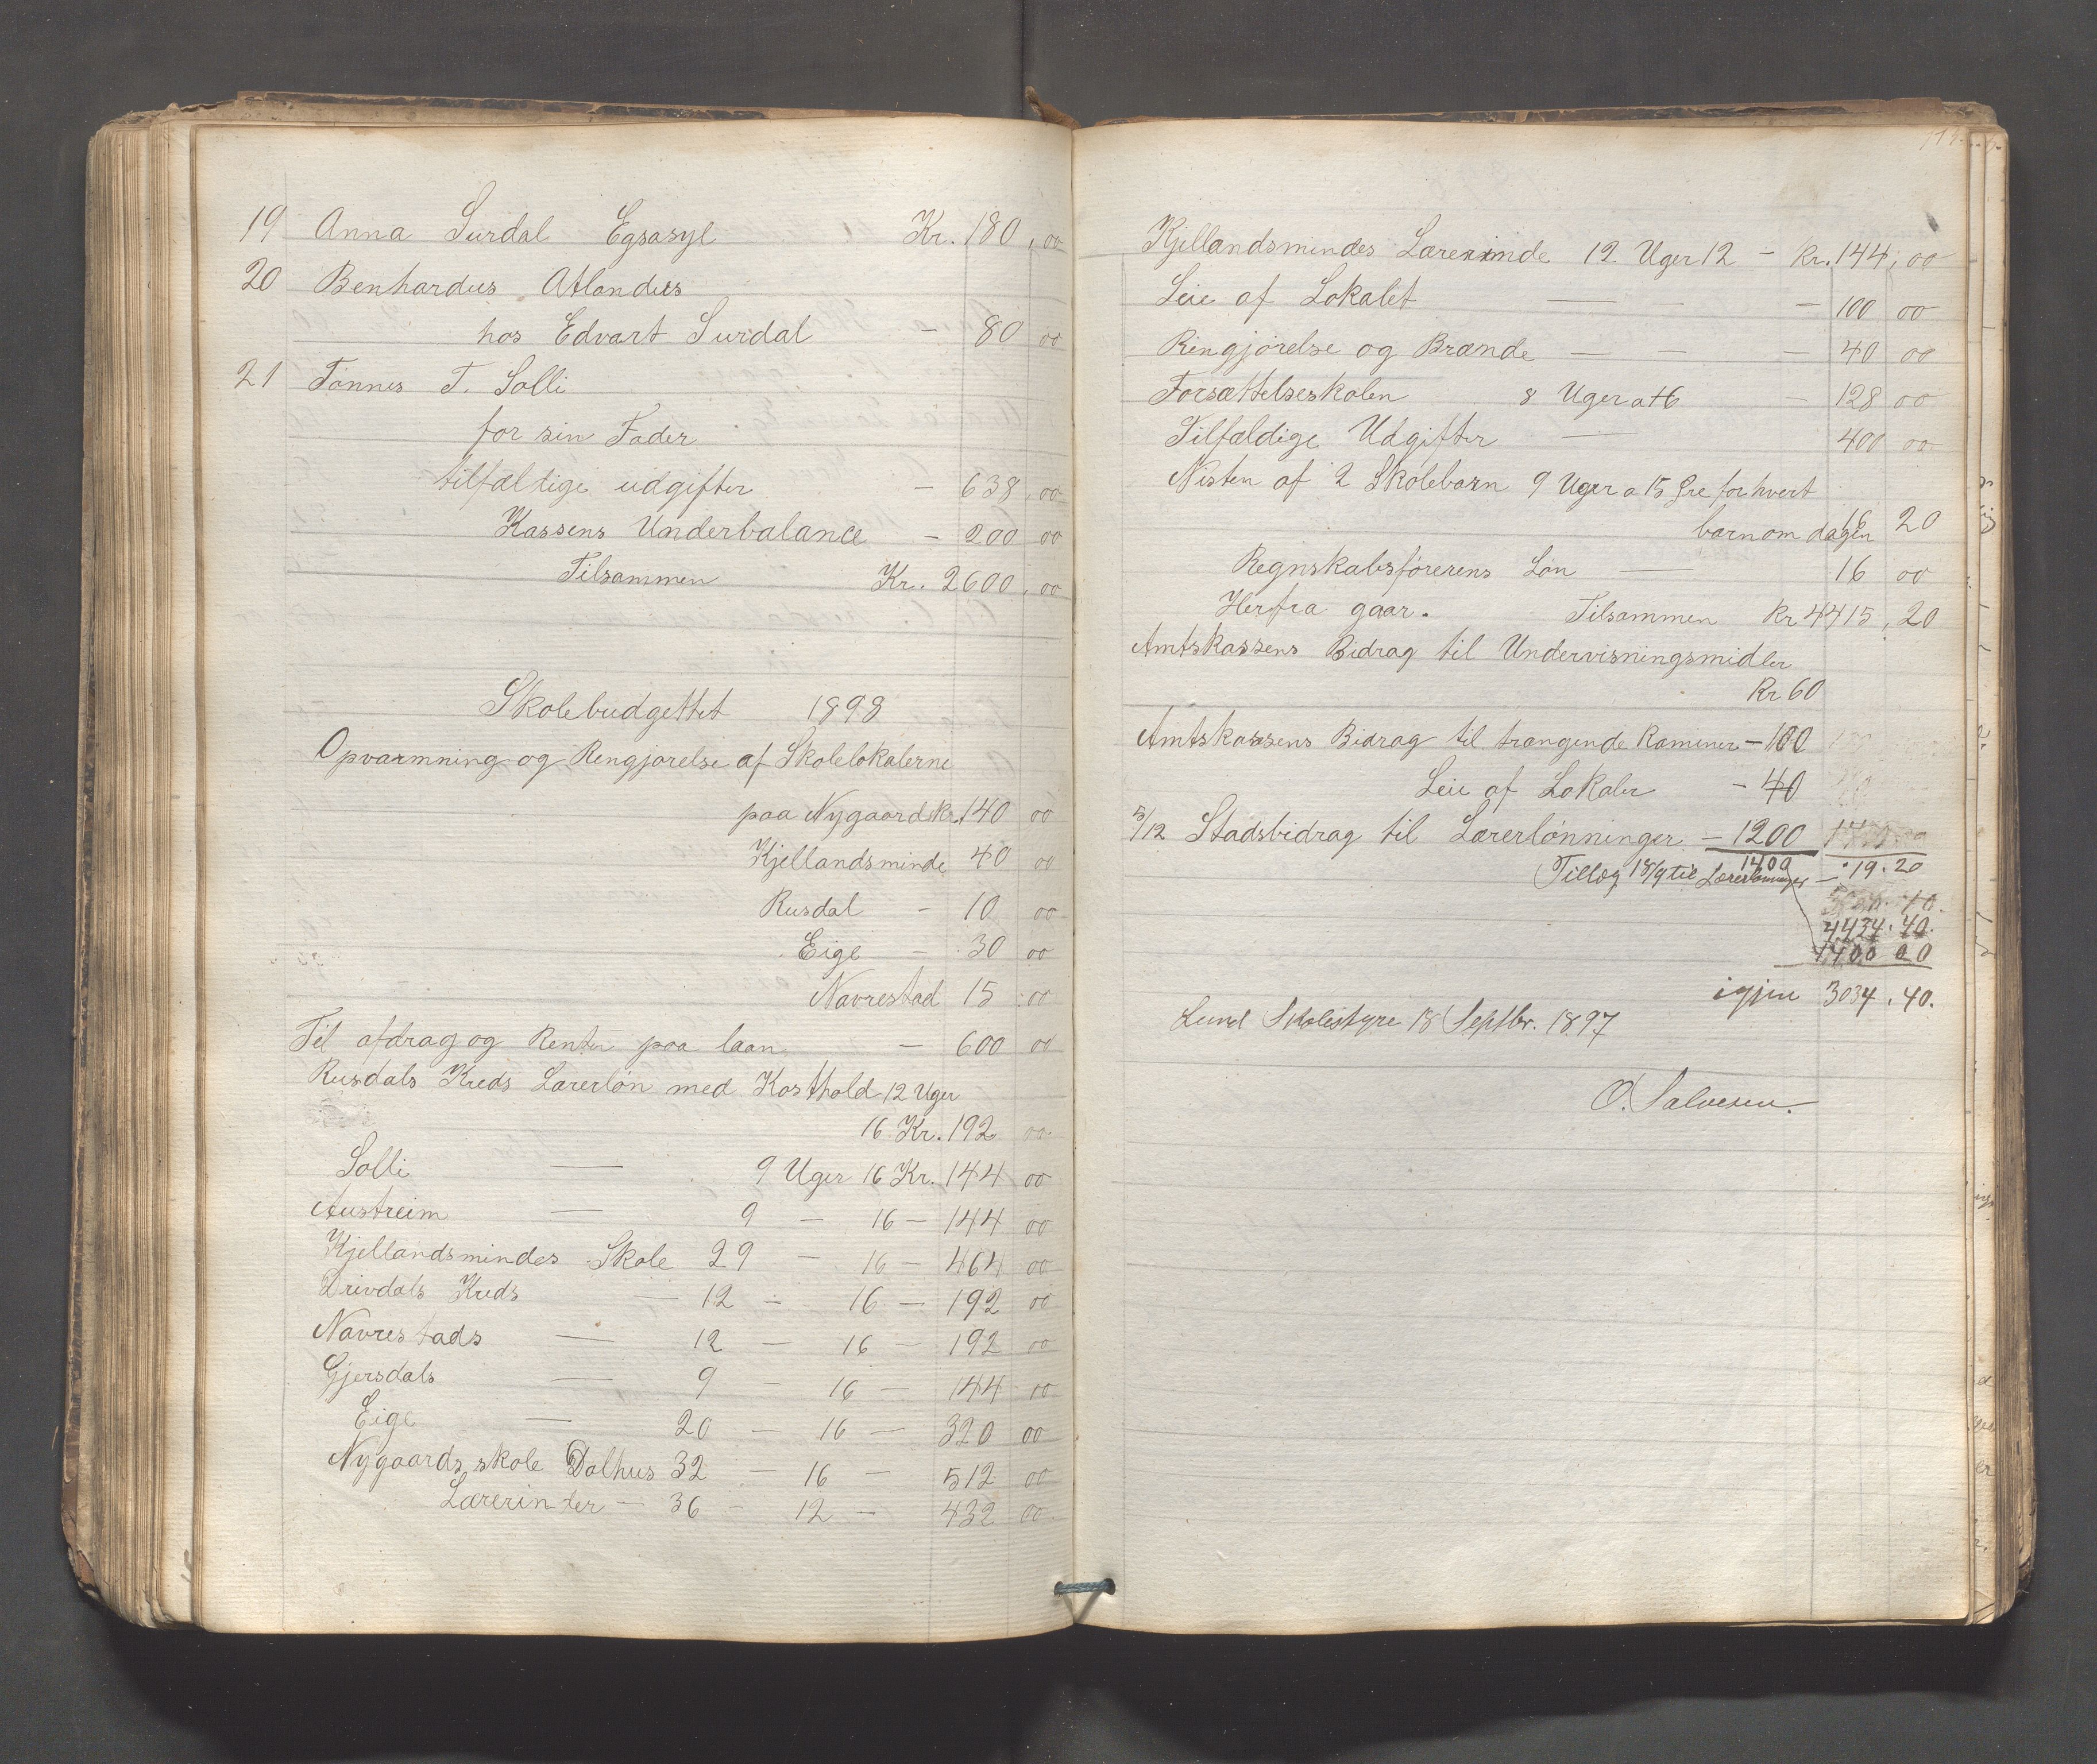 19 Anna Surdal Egsasyl Kr. 180,00
20 Benhardus Atlandus
hos Edvart Surdal - 80 00
21 Tønnes T. Solli
for sin Fader
tilfæltige udgifter - 638,00
Kassens Underbalance - 200 00
Tilsammen Kr. 2600,00
Skolebudgettet 1898
Opvarmning og Rengjørelse af Skolelokalerne
paa Nygaard Kr. 140 00
Kjellandsminde 40 00
Rusdal - 10 00
Eige - 30 00
Navrestad 15 00
Til afdrag og Renter paa laan - 600 00
Rusdals Kreds Lærerløn med Kosthold 12 Uger
16 Kr. 192 00
Solli — 9 Uger 16 Kr. 144 00
Austreim — 9 — 16 — 144 00
Kjellandsmindes Skole 29 — 16 — 464 00
Drivdals Kreds — 12 — 16 — 192 00
Navrestads — 12 — 16 — 192 00
Gjersdals — 9 — 16 — 144 00
Eige — 20 — 16 — 320 00
Nygaards skole Dalhus 32 — 16 — 512 00
Lærerinder — 36 — 12 — 432 00
Kjellandsmindes Lærerinde 12 Uger 12 - Kr. 144,00
Leie af Lokalet — — - 100 00
Ringjørelse og Brænde — — - 40 00
Forsættelseskolen 8 Uger at 16 - 128 00
Tilfældige Udgifter — 400 00
Nisten af 2 Skolebørn 9 Uger a 15 Øre for hvert
barn om dagen 16 20
Regnskabsførerens Løn — 16 00
Herfra gaar. Tilsammen Kr 4415,20
Amtskassens Bidrag til Undervisningsmidler
Kr 60
Amtskassens Bidrag til trangende Kommuner - 100
Leie af Lokaler - 40
5/12 Stadsbidrag til Lærerlønninger - 1200
1400
Tillæg 18/9 til Lærerlønninger — 19.20
4434.40.
1400 00
igjen 3034.40.
Lund Skolestyre 18 Septbr. 1897
O. Salvesen.